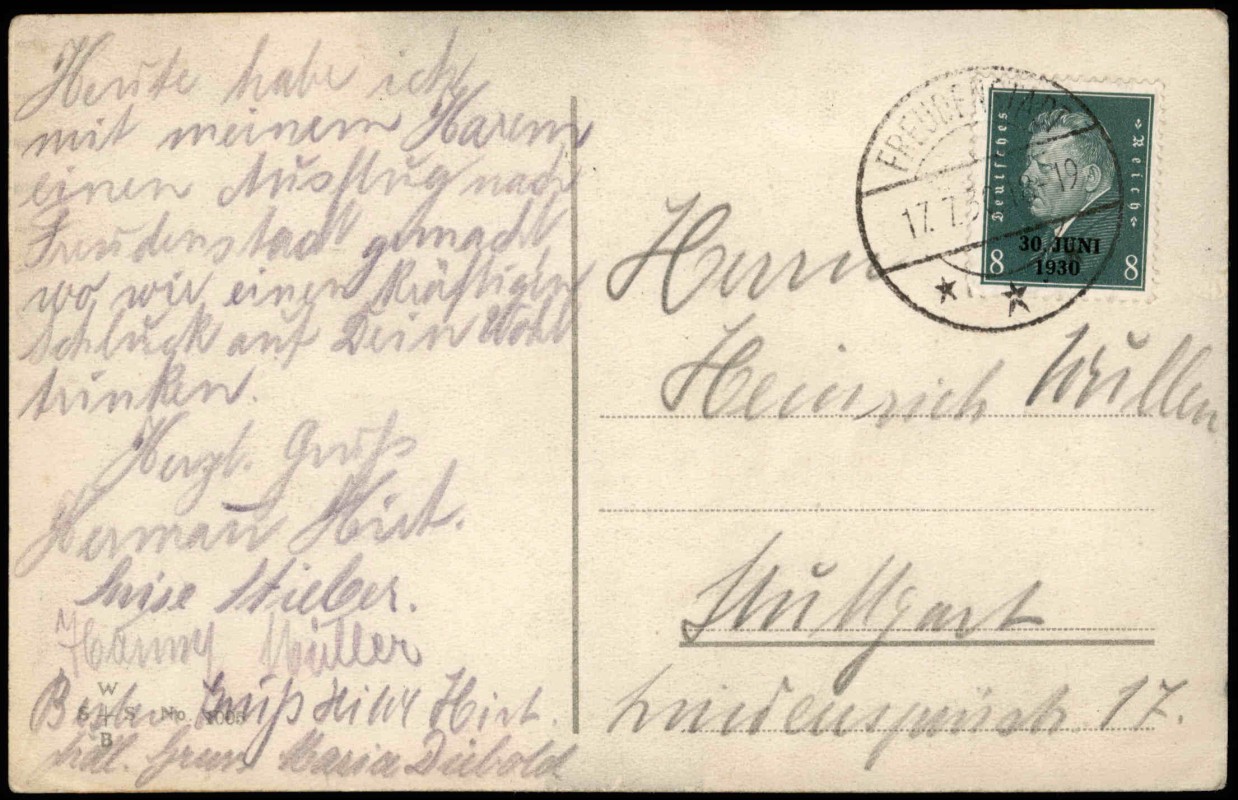 Heute habe ich
mit meinem Harem
einen Ausflug nach
Freudenstadt gemacht,
wo wir einen kräftigen
Schluck auf Dein Wohl
trinken.
Herzl. Gruß
Hermann Hirt.
Luise Stieber.
Hanny Müller
Besten Gruß Hirt.
Frdl. Gruss Maria Diebold
W
S + S No. 1006
B
FREUDENSTADT
17.7.30 18-19
Deutsches Reich
30. JUNI
1930
8 8
Herrn
Heinrich Wullen
Stuttgart
17.